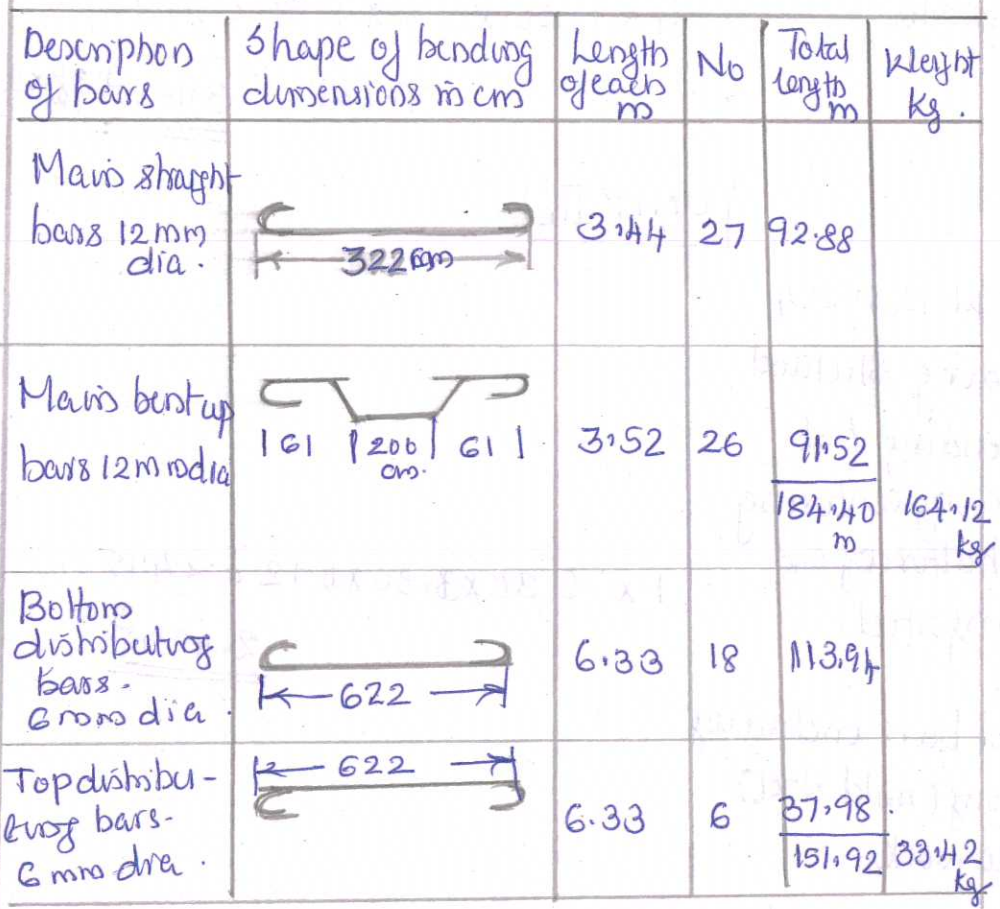 Description
of bars
Shape of bending
dimensions in cm
Length
of each
m
No
Total
length
m
Weight
Kg.
Main straight
bars 12mm
dia.
322 cm
3.44
27
92.88
Main bent up
bars 12mm dia
61 200 61
cm.
3.52
26
91.52
184.40
m
164.12
kg
Bottom
distributing
bars.
6mm dia.
622
6.33
18
113.94
Top distribu-
ting bars-
6mm dia.
622
6.33
6
37.98
151.92
33.42
kg